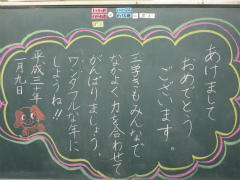 あけまして
おめでとう
ございます。
三学きもみんなで
なかよく力を合わせて
がんばりましょう。
ワンダフルな年に
しようね!!
平成三十年
一月九日